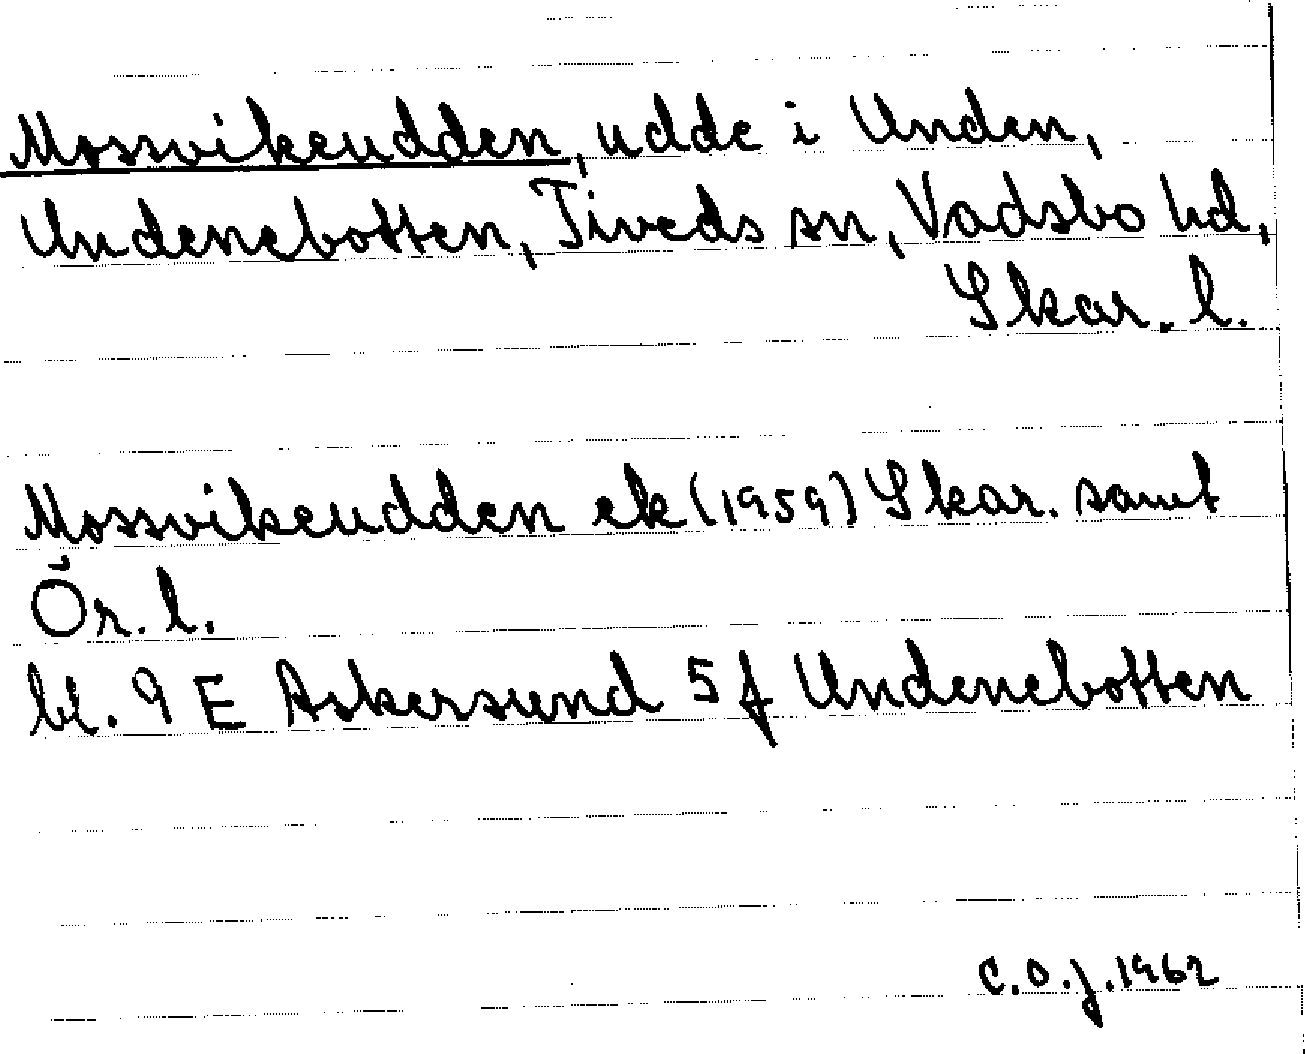 Mossvikeudden, udde i Unden,
Undenebotten, Tiveds sn, Vadsbo hd,
Skar. l.
Mossvikeudden ek (1959) Skar. samt
Ör. l.
bl. 9 E Askersund 5 f Undenebotten
C.O.J. 1962